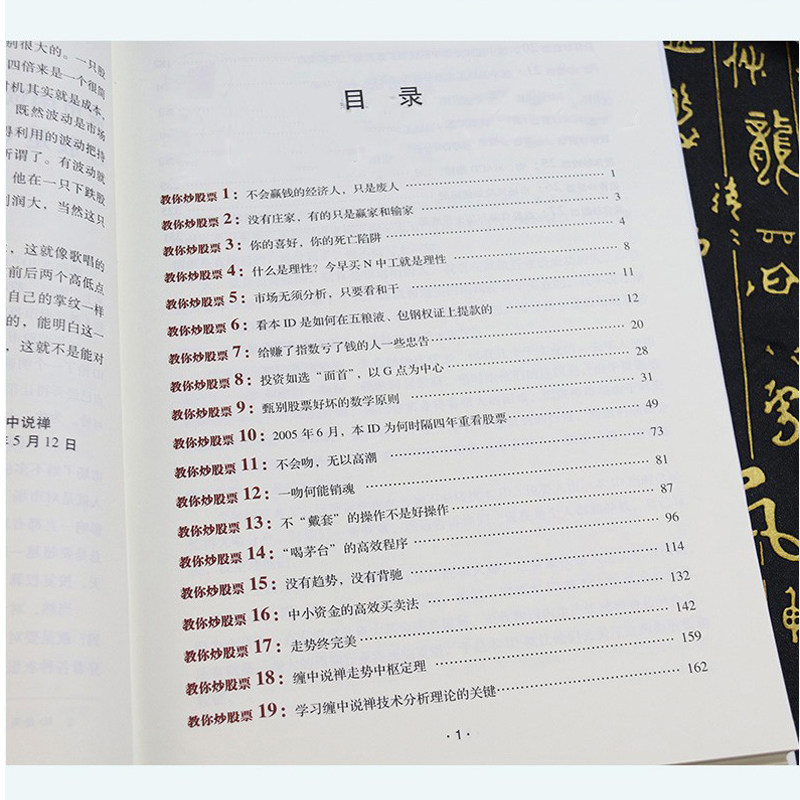 别很大的。一只股
四倍来是一个很简
时机其实就是成本,
既然波动是市场
得利用的波动把持
所谓了。有波动就
他在一只下跌股
利润大,当然这只
,这就像歌唱的
前后两个高低点
自己的掌纹一样
的,能明白这一
,这就不是能对
中说禅
年5月12日
目 录
教你炒股票 1:不会赢钱的经济人,只是废人 1
教你炒股票 2:没有庄家,有的只是赢家和输家 3
教你炒股票 3:你的喜好,你的死亡陷阱 4
教你炒股票 4:什么是理性?今早买N中工就是理性 8
教你炒股票 5:市场无须分析,只要看和干 11
教你炒股票 6:看本ID是如何在五粮液、包钢权证上提款的 12
教你炒股票 7:给赚了指数亏了钱的人一些忠告 20
教你炒股票 8:投资如选“面首”,以G点为中心 28
教你炒股票 9:甄别股票好坏的数学原则 31
教你炒股票 10:2005年6月,本ID为何时隔四年重看股票 49
教你炒股票 11:不会吻,无以高潮 73
教你炒股票 12:一吻何能销魂 81
教你炒股票 13:不“戴套”的操作不是好操作 87
教你炒股票 14:“喝茅台”的高效程序 96
教你炒股票 15:没有趋势,没有背驰 114
教你炒股票 16:中小资金的高效买卖法 132
教你炒股票 17:走势终完美 142
教你炒股票 18:缠中说禅走势中枢定理 159
教你炒股票 19:学习缠中说禅技术分析理论的关键 162
·1·